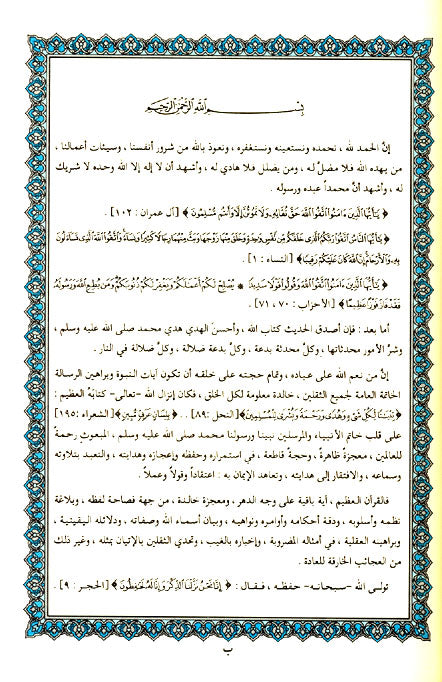 بِسْمِ اللَّهِ الرَّحْمَنِ الرَّحِيمِ
إنَّ الحمد لله ، نحمده ونستعينه ونستغفره ، ونعوذ بالله من شرور أنفسنا ، وسيئات أعمالنا ،
من يهده الله فلا مضلَّ له ، ومن يضلل فلا هادي له ، وأشهد أن لا إله إلا الله وحده لا شريك
له ، وأشهد أنَّ محمداً عبده ورسوله .
﴿ يَٰٓأَيُّهَا ٱلَّذِينَ ءَامَنُوا۟ ٱتَّقُوا۟ ٱللَّهَ حَقَّ تُقَاتِهِۦ وَلَا تَمُوتُنَّ إِلَّا وَأَنتُم مُّسْلِمُونَ ﴾ [آل عمران : ١٠٢] .
﴿ يَٰٓأَيُّهَا ٱلنَّاسُ ٱتَّقُوا۟ رَبَّكُمُ ٱلَّذِى خَلَقَكُم مِّن نَّفْسٍ وَٰحِدَةٍ وَخَلَقَ مِنْهَا زَوْجَهَا وَبَثَّ مِنْهُمَا رِجَالًا كَثِيرًا وَنِسَآءً وَٱتَّقُوا۟ ٱللَّهَ ٱلَّذِى تَسَآءَلُونَ
بِهِۦ وَٱلْأَرْحَامَ إِنَّ ٱللَّهَ كَانَ عَلَيْكُمْ رَقِيبًا ﴾ [النساء : ١] .
﴿ يَٰٓأَيُّهَا ٱلَّذِينَ ءَامَنُوا۟ ٱتَّقُوا۟ ٱللَّهَ وَقُولُوا۟ قَوْلًا سَدِيدًا * يُصْلِحْ لَكُمْ أَعْمَٰلَكُمْ وَيَغْفِرْ لَكُمْ ذُنُوبَكُمْ وَمَن يُطِعِ ٱللَّهَ وَرَسُولَهُۥ
فَقَدْ فَازَ فَوْزًا عَظِيمًا ﴾ [الأحزاب : ٧٠ ، ٧١] .
أما بعد : فإن أصدق الحديث كتاب الله ، وأحسن الهدي هدي محمد صلى الله عليه وسلم ،
وشرُّ الأمور محدثاتها ، وكلُّ محدثة بدعة ، وكلُّ بدعة ضلالة ، وكلُّ ضلالة في النار .
إنَّ من نعم الله على عباده ، وتمام حجته على خلقه أن تكون آيات النبوة وبراهين الرسالة
الخاتمة العامة لجميع الثقلين ، خالدة معلومة لكل الخلق ، فكان إنزال الله -تعالى- كتابَهُ العظيم :
﴿ تِبْيَٰنًا لِّكُلِّ شَىْءٍ وَهُدًى وَرَحْمَةً وَبُشْرَىٰ لِلْمُسْلِمِينَ ﴾ [النحل :٨٩] . . ﴿ بِلِسَانٍ عَرَبِىٍّ مُّبِينٍ ﴾ [الشعراء :١٩٥]
على قلب خاتم الأنبياء والمرسلين نبينا ورسولنا محمد صلى الله عليه وسلم ، المبعوث رحمةً
للعالمين ، معجزةً ظاهرةً ، وحجةً قاطعة ، في استمراره وحفظه وإعجازه وهدايته ، والتعبد بتلاوته
وسماعه ، والافتقار إلى هدايته ، وتعاهد الإيمان به : اعتقاداً وقولاً وعملاً .
فالقرآن العظيم ، آية باقية على وجه الدهر ، ومعجزة خالدة ، من جهة فصاحة لفظه ، وبلاغة
نظمه وأسلوبه ، ودقة أحكامه وأوامره ونواهيه ، وبيان أسماء الله وصفاته ، ودلائله اليقينية ،
وبراهينه العقلية ، في أمثاله المضروبة ، وإخباره بالغيب ، وتحدي الثقلين بالإتيان بمثله ، وغير ذلك
من العجائب الخارقة للعادة .
تولى الله -سبحانه- حفظه ، فقال : ﴿ إِنَّا نَحْنُ نَزَّلْنَا ٱلذِّكْرَ وَإِنَّا لَهُۥ لَحَٰفِظُونَ ﴾ [الحجر : ٩] .
ب